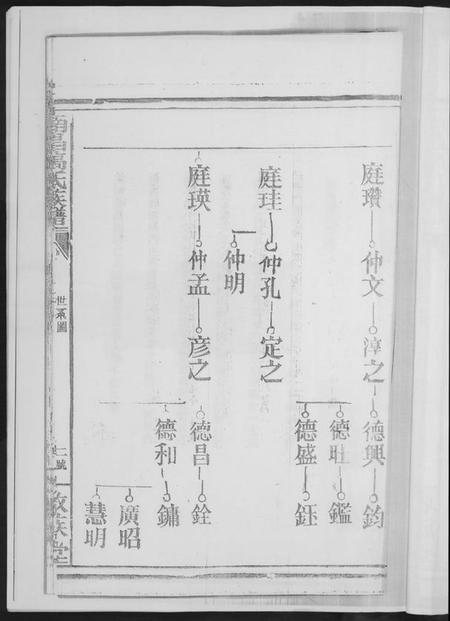 庭瓚 仲文 淳之 德興 鈞
德旺 鑑
德盛 鈺
庭珪 仲孔 定之
仲明
庭瑛 仲孟 彦之 德昌 銓
德和 鏞
廣昭
慧明
氏族譜
世系圖
號
敬